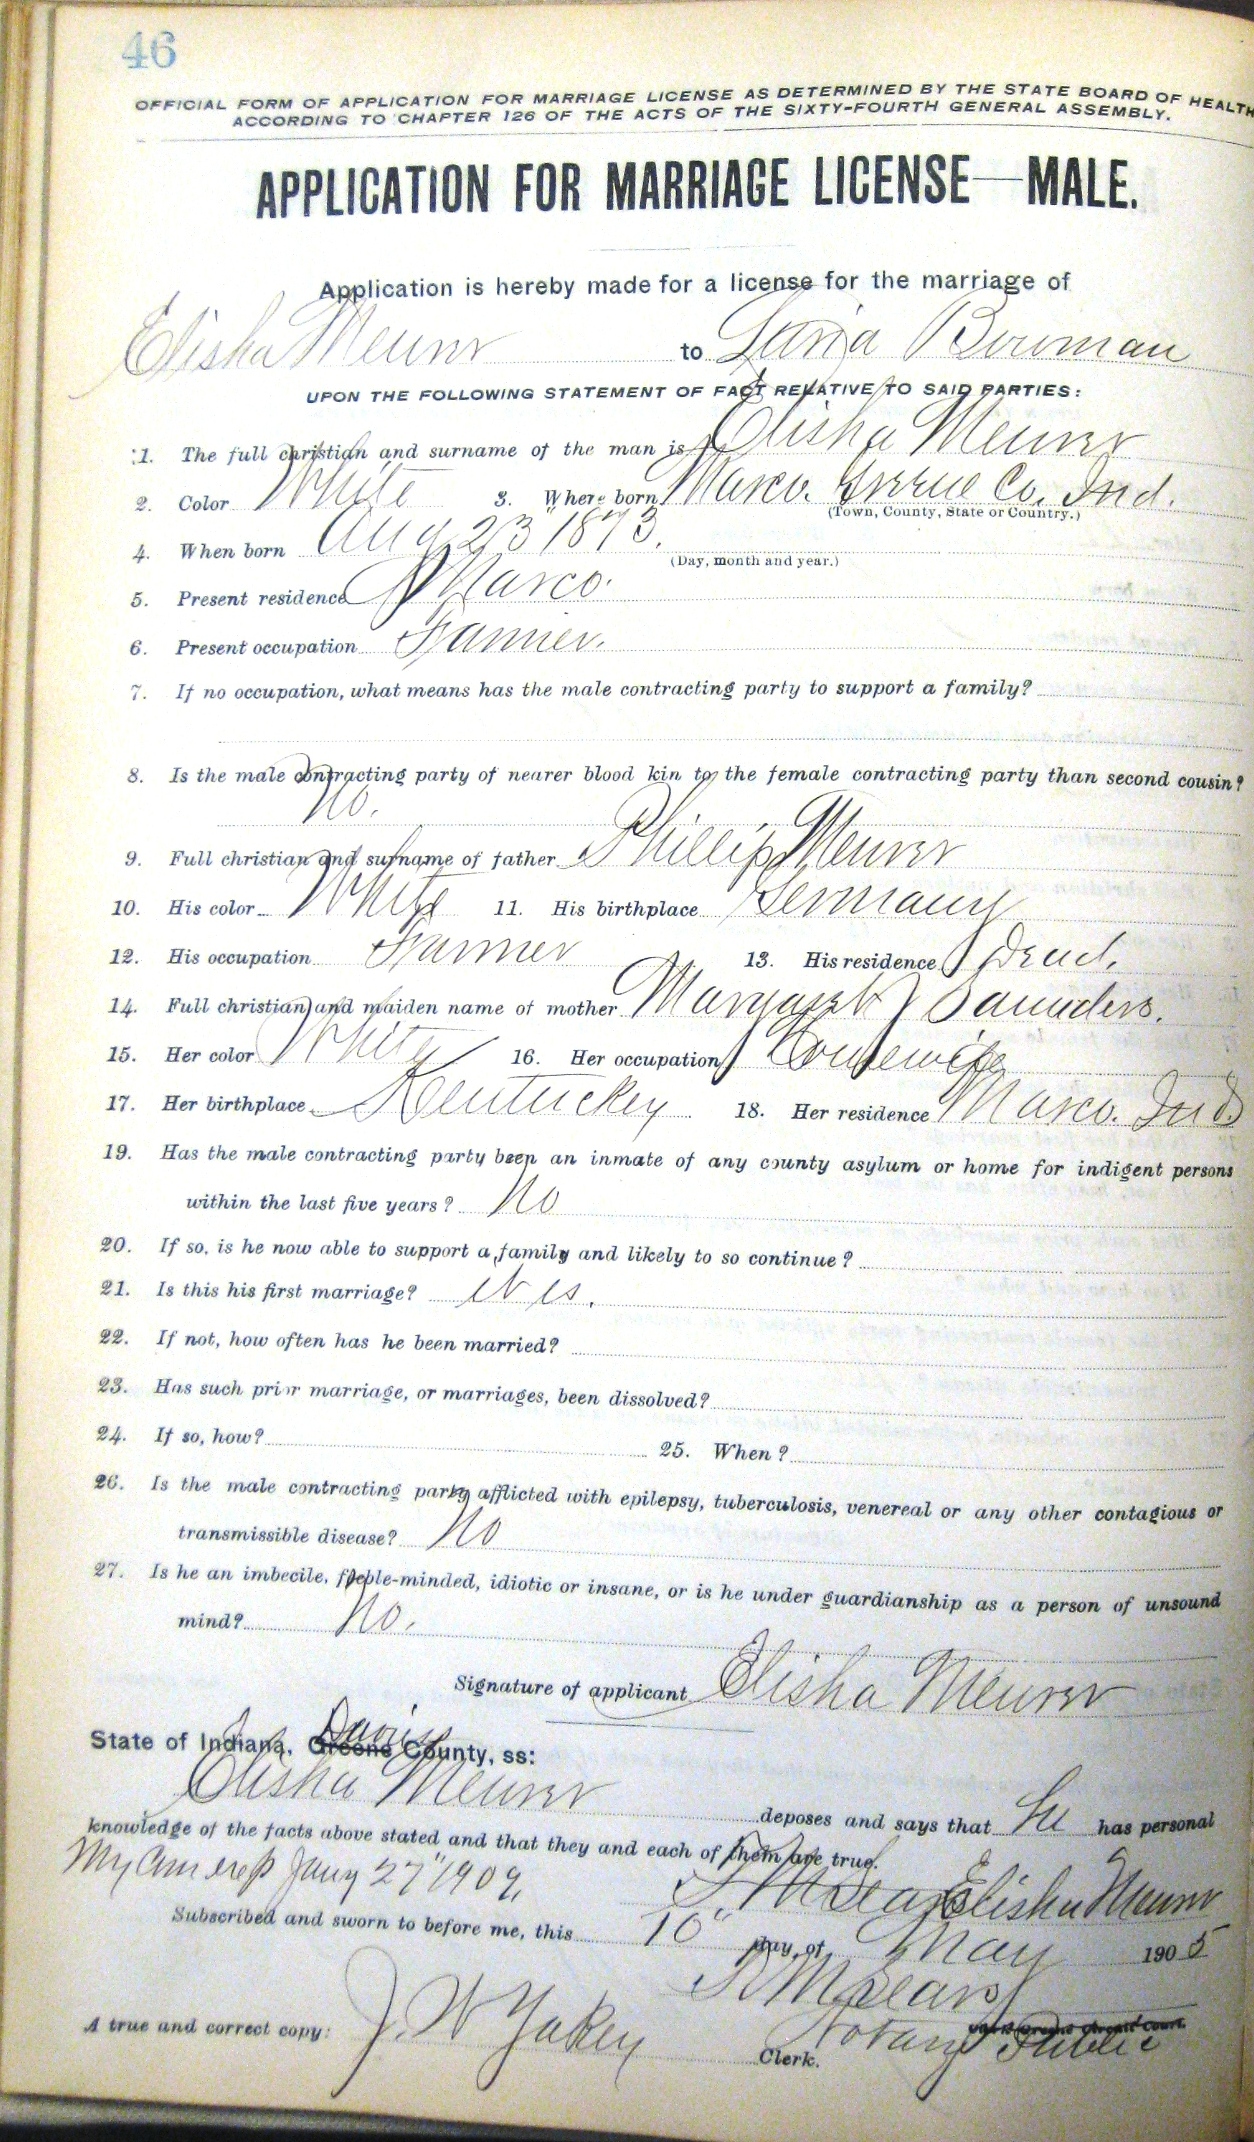 46
OFFICIAL FORM OF APPLICATION FOR MARRIAGE LICENSE AS DETERMINED BY THE STATE BOARD OF HEALTH
ACCORDING TO CHAPTER 126 OF THE ACTS OF THE SIXTY-FOURTH GENERAL ASSEMBLY.
APPLICATION FOR MARRIAGE LICENSE—MALE.
Application is hereby made for a license for the marriage of
Elisha Meurer to Bowman
UPON THE FOLLOWING STATEMENT OF FACT RELATIVE TO SAID PARTIES:
1. The full christian and surname of the man is Elisha Meurer
2. Color White 3. Where born Marco. Greene Co. Ind.
(Town, County, State or Country.)
4. When born Aug 23" 1873.
(Day, month and year.)
5. Present residence Marco.
6. Present occupation Farmer.
7. If no occupation, what means has the male contracting party to support a family?
8. Is the male contracting party of nearer blood kin to the female contracting party than second cousin?
No.
9. Full christian and surname of father Phillip Meurer
10. His color White 11. His birthplace Germany
12. His occupation Farmer 13. His residence Dead.
14. Full christian and maiden name of mother Margaret Saunders.
15. Her color White 16. Her occupation Housewife
17. Her birthplace Kentucky 18. Her residence Marco. Ind
19. Has the male contracting party been an inmate of any county asylum or home for indigent persons
within the last five years? No
20. If so, is he now able to support a family and likely to so continue?
21. Is this his first marriage? Yes.
22. If not, how often has he been married?
23. Has such prior marriage, or marriages, been dissolved?
24. If so, how? 25. When?
26. Is the male contracting party afflicted with epilepsy, tuberculosis, venereal or any other contagious or
transmissible disease? No
27. Is he an imbecile, feeble-minded, idiotic or insane, or is he under guardianship as a person of unsound
mind? No.
Signature of applicant Elisha Meurer
Daviess
State of Indiana, Greene County, ss:
Elisha Meurer deposes and says that he has personal
knowledge of the facts above stated and that they and each of them are true.
My Com exp Jany 27" 1909. Elisha Meurer
Subscribed and sworn to before me, this 10" day of May 1905
M Sears
A true and correct copy: J. W Yakey Clerk. Notary Public